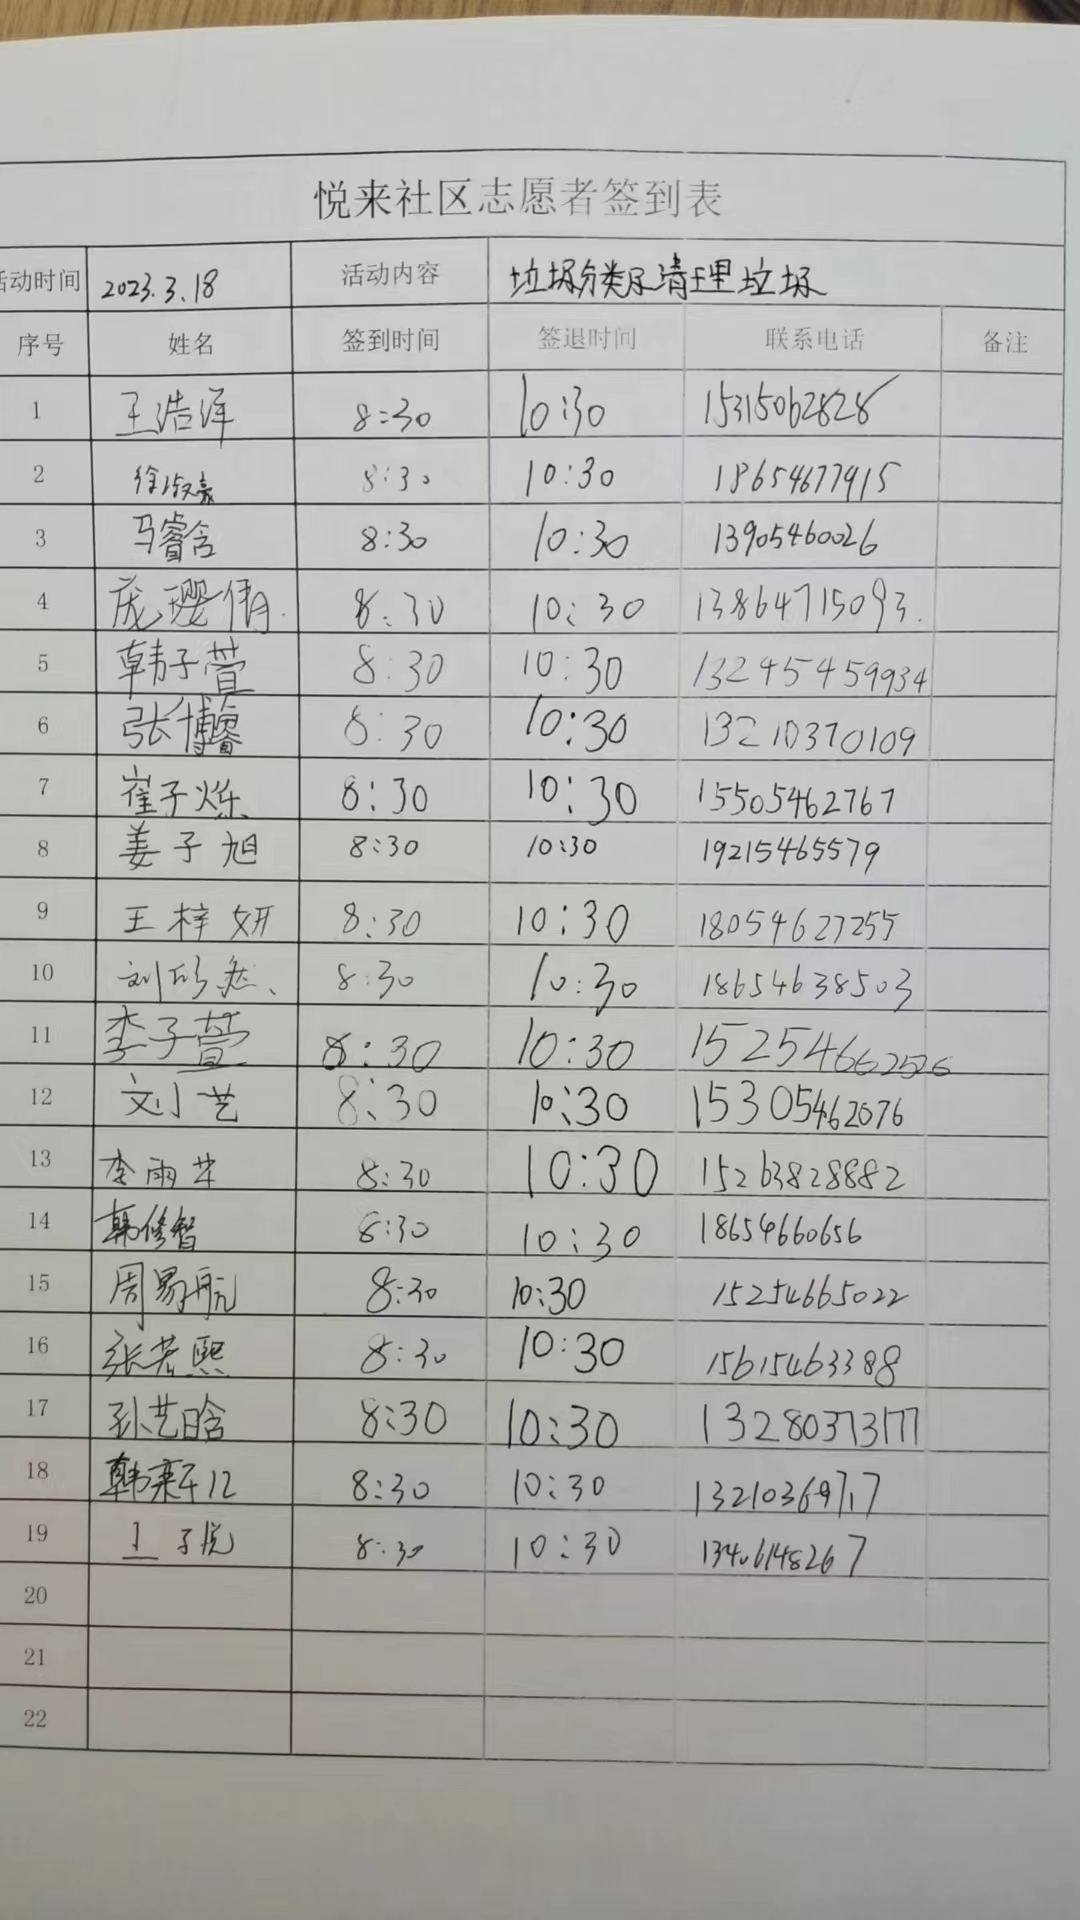 悦来社区志愿者签到表
活动时间 2023.3.18 活动内容 垃圾分类及清理垃圾
序号 姓名 签到时间 签退时间 联系电话 备注
1 王浩泽 8:30 10:30 15315062828
2 8:30 10:30 18654677915
3 马睿含 8:30 10:30 13905460026
4 庞璎倩 8:30 10:30 13864715093
5 韩子萱 8:30 10:30 132454459934
6 张博睿 8:30 10:30 13210370109
7 崔子烁 8:30 10:30 15505462767
8 姜子旭 8:30 10:30 19215465579
9 王梓妍 8:30 10:30 18054627255
10 8:30 10:30 18654638503
11 李子萱 8:30 10:30 152546662526
12 刘小艺 8:30 10:30 15305462076
13 李雨芊 8:30 10:30 15263828882
14 韩修智 8:30 10:30 18654660656
15 周易航 8:30 10:30 15254665022
16 张若熙 8:30 10:30 15615463388
17 孙艺晗 8:30 10:30 13280373177
18 8:30 10:30 13210369717
19 王子悦 8:30 10:30 13406148267
20
21
22